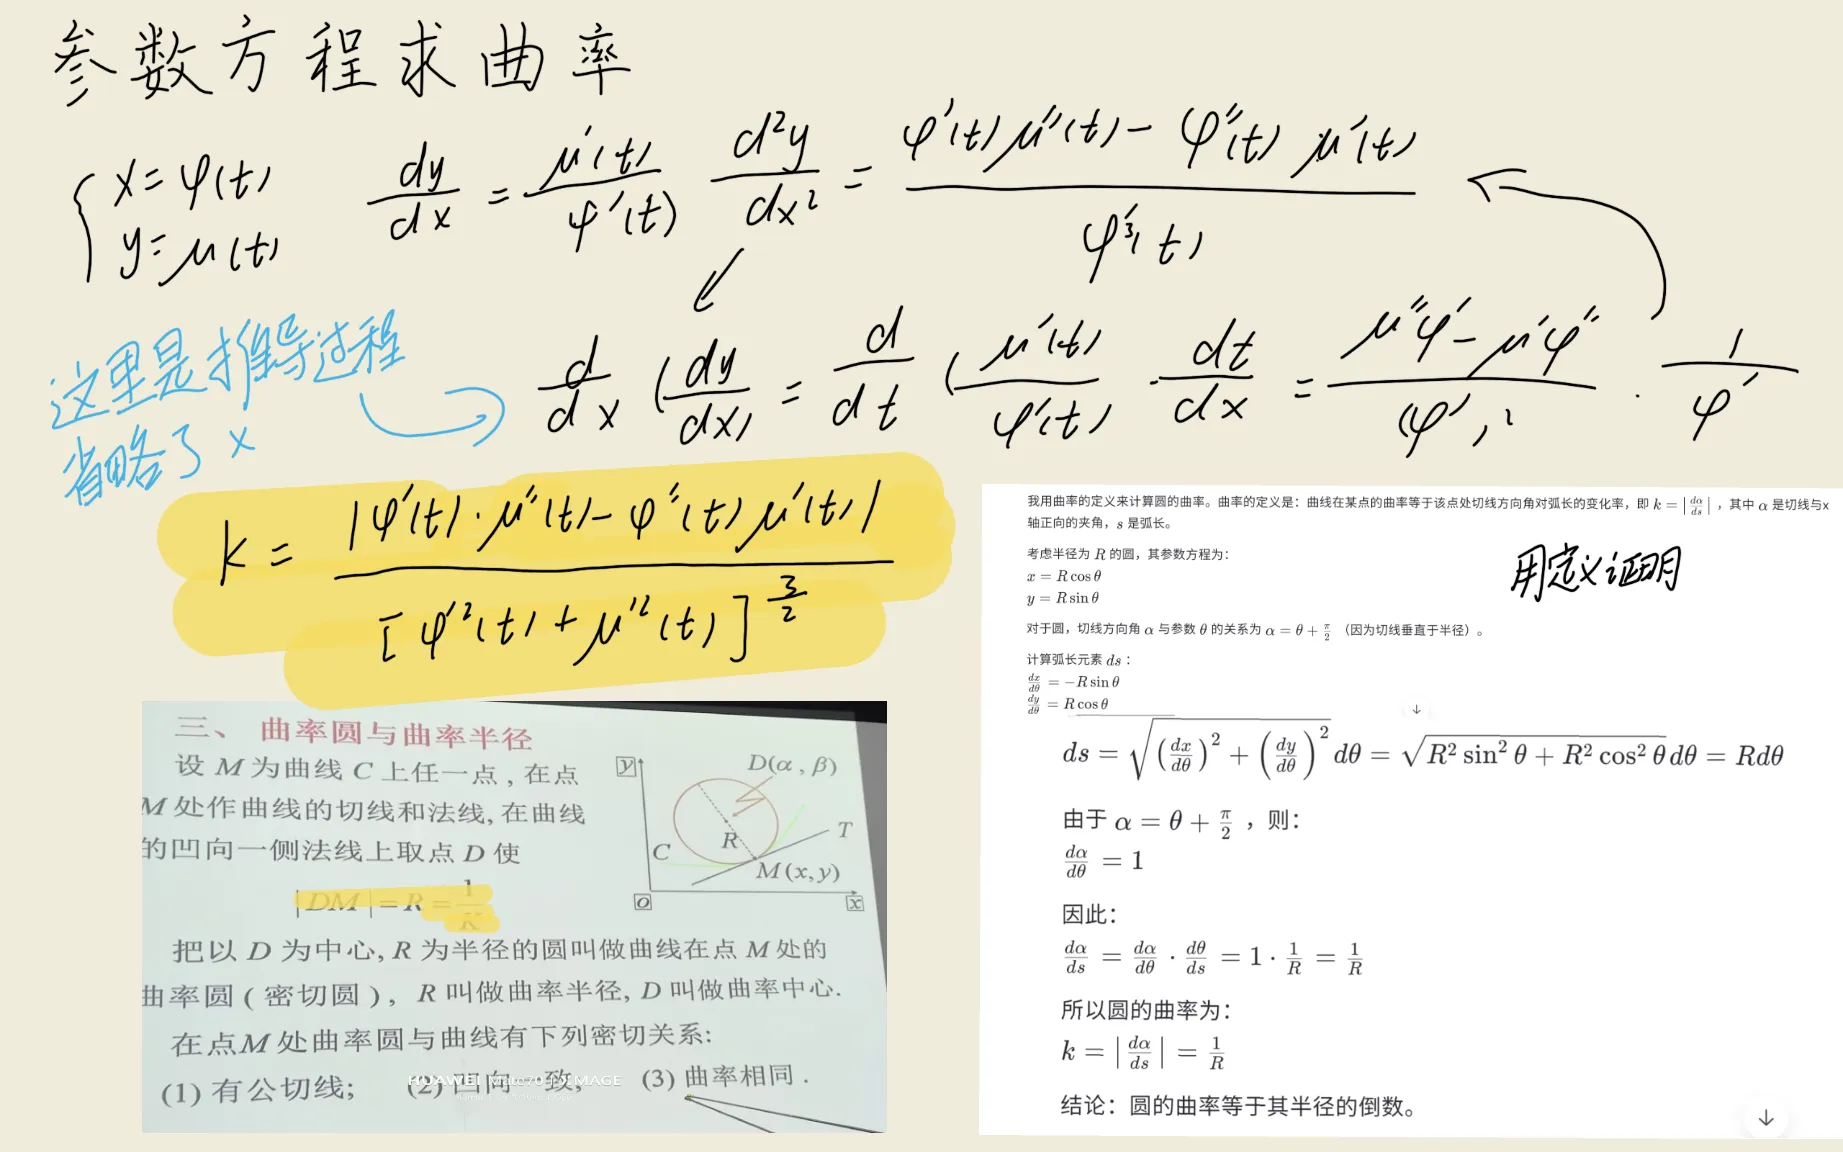 参数方程求曲率
{ x = φ(t)
y = μ(t)
dy/dx = μ'(t)/φ'(t)
d²y/dx² = (φ'(t)μ''(t) - φ''(t)μ'(t))/φ'³(t)
这里是推导过程
省略了 x
d/dx (dy/dx) = d/dt (μ'(t)/φ'(t) · dt/dx = (μ''φ' - μ'φ'')/(φ')² · 1/φ'
k = |φ'(t)·μ''(t) - φ''(t)μ'(t)| / [φ'²(t) + μ'²(t)]^(3/2)
三、曲率圆与曲率半径
设 M 为曲线 C 上任一点, 在点
M 处作曲线的切线和法线, 在曲线
的凹向一侧法线上取点 D 使
|DM| = R = 1/K
把以 D 为中心, R 为半径的圆叫做曲线在点 M 处的
曲率圆 ( 密切圆 ), R 叫做曲率半径, D 叫做曲率中心.
在点M 处曲率圆与曲线有下列密切关系:
(1) 有公切线; (2) 凹向一致; (3) 曲率相同.
y
D(α, β)
R
T
C
M(x, y)
o
x
我用曲率的定义来计算圆的曲率。曲率的定义是：曲线在某点的曲率等于该点处切线方向角对弧长的变化率，即 k = |dα/ds|，其中 α 是切线与x
轴正向的夹角，s 是弧长。
用定义证明
考虑半径为 R 的圆，其参数方程为：
x = R cos θ
y = R sin θ
对于圆，切线方向角 α 与参数 θ 的关系为 α = θ + π/2 （因为切线垂直于半径）。
计算弧长元素 ds：
dx/dθ = −R sin θ
dy/dθ = R cos θ
ds = √((dx/dθ)² + (dy/dθ)²) dθ = √(R² sin² θ + R² cos² θ) dθ = Rdθ
由于 α = θ + π/2 ，则：
dα/dθ = 1
因此：
dα/ds = dα/dθ · dθ/ds = 1 · 1/R = 1/R
所以圆的曲率为：
k = |dα/ds| = 1/R
结论：圆的曲率等于其半径的倒数。